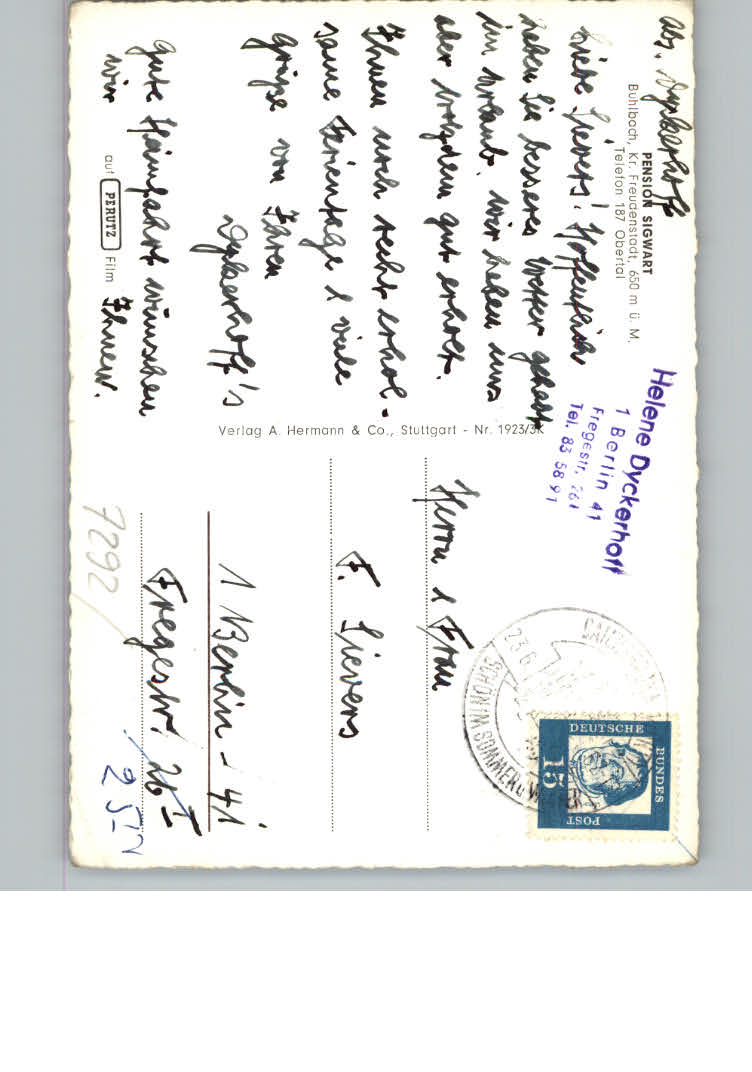 Abs. Dyckerhoff
PENSION SIGWART
Buhlbach, Kr. Freudenstadt, 650 m ü. M.
Telefon 187 Obertal
Liebe Sievers! Hoffentlich
haben Sie besseres Wetter gehabt
im Urlaub. Wir haben uns
aber trotzdem gut erholt.
Ihnen noch recht erhol-
same Ferientage & viele
Grüße von Ihren
Dyckerhoff's
Gute Heimfahrt wünschen
wir Ihnen.
auf PERUTZ Film
Verlag A. Hermann & Co., Stuttgart - Nr. 1923/3K
Helene Dyckerhoff
1 Berlin 41
Fregestr. 26I
Tel. 83 58 91
23.6.
SCHÖN IM SOMMER U. WINTER
DEUTSCHE
BUNDES
POST
15
Herrn & Frau
F. Sievers
1 Berlin - 41
Fregestr. 26 I
7292